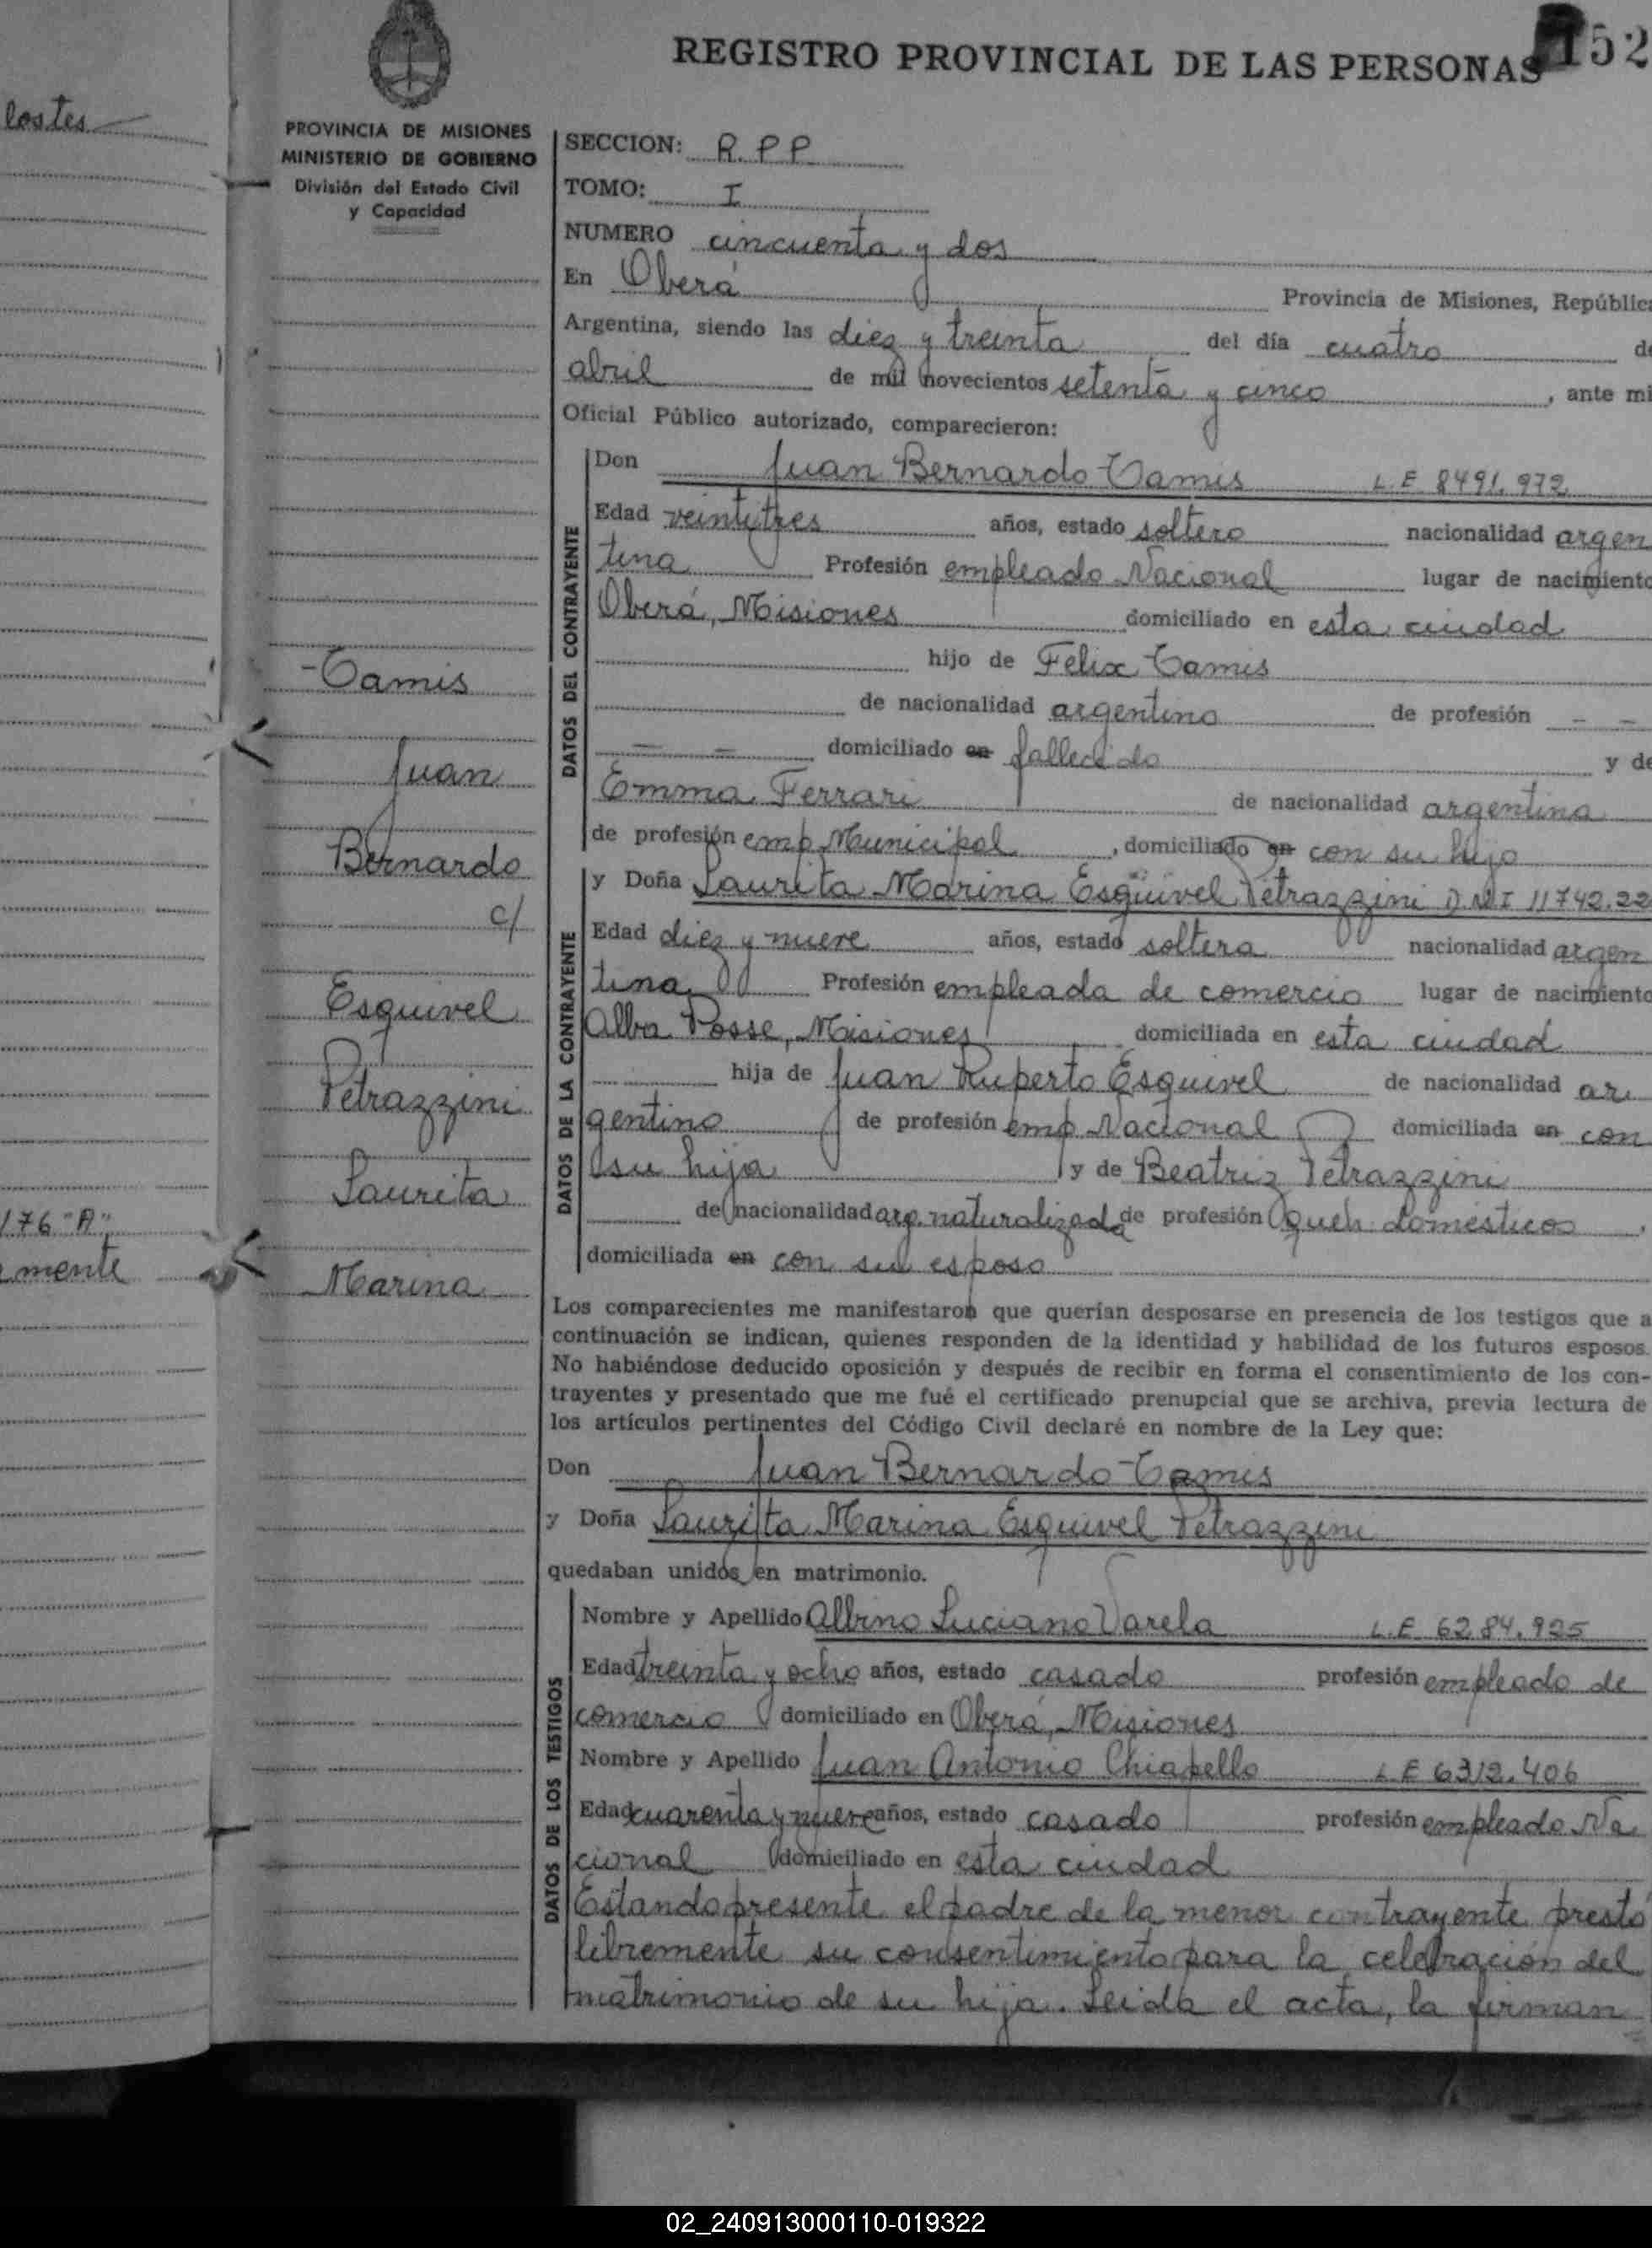 lostes
176 "A"
mente
REGISTRO PROVINCIAL DE LAS PERSONAS
152
PROVINCIA DE MISIONES
MINISTERIO DE GOBIERNO
División del Estado Civil
y Capacidad
Tamis
Juan
Bernardo
c/
Esquivel
Petrazzini
Laurita
Marina
SECCION: R.P.P.
TOMO: I
NUMERO cincuenta y dos
En Oberá Provincia de Misiones, República
Argentina, siendo las diez y treinta del día cuatro de
abril de mil novecientos setenta y cinco, ante mi
Oficial Público autorizado, comparecieron:
DATOS DEL CONTRAYENTE
Don Juan Bernardo Tamis L.E 8491.972
Edad veintitres años, estado soltero nacionalidad argen
tina Profesión empleado Nacional lugar de nacimiento
Oberá, Misiones domiciliado en esta ciudad
hijo de Felix Tamis
de nacionalidad argentino de profesión - -
- - domiciliado en fallecido y de
Emma Ferrari de nacionalidad argentina
de profesión emp. Municipal, domiciliado en con su hijo
DATOS DE LA CONTRAYENTE
y Doña Laurita Marina Esquivel Petrazzini D.N.I 11742.22
Edad diez y nueve años, estado soltera nacionalidad argen
tina Profesión empleada de comercio lugar de nacimiento
Alba Posse, Misiones domiciliada en esta ciudad
hija de Juan Ruperto Esquivel de nacionalidad ar
gentino de profesión emp. Nacional domiciliada en con
su hija y de Beatriz Petrazzini
de nacionalidad arg. naturalizada de profesión queh. domésticos,
domiciliada en con su esposo
Los comparecientes me manifestaron que querían desposarse en presencia de los testigos que a
continuación se indican, quienes responden de la identidad y habilidad de los futuros esposos.
No habiéndose deducido oposición y después de recibir en forma el consentimiento de los con-
trayentes y presentado que me fué el certificado prenupcial que se archiva, previa lectura de
los artículos pertinentes del Código Civil declaré en nombre de la Ley que:
Don Juan Bernardo Tamis
y Doña Laurita Marina Esquivel Petrazzini
quedaban unidos en matrimonio.
DATOS DE LOS TESTIGOS
Nombre y Apellido Albino Luciano Varela L.E 6284.925
Edad treinta y ocho años, estado casado profesión empleado de
comercio domiciliado en Oberá, Misiones
Nombre y Apellido Juan Antonio Chiapello L.E 6312.406
Edad cuarenta y nueve años, estado casado profesión empleado Na
cional domiciliado en esta ciudad
Estando presente el padre de la menor contrayente presto
libremente su consentimiento para la celebración del
matrimonio de su hija. Leida el acta, la firman
02_240913000110-019322